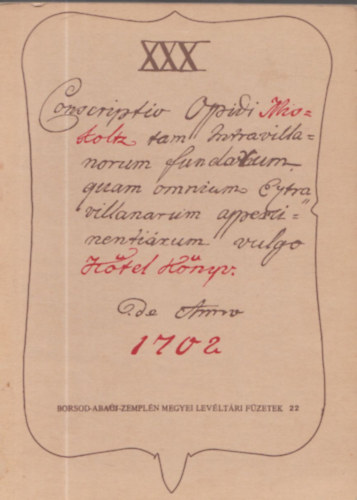 XXX
Conscriptio Opidi Mis=
koltz tam Intravilla=
norum fundorum
quam omnium Extra
villanarum apperti=
nentiárum vulgo
Kötel Könyv.
de Anno
1702
BORSOD-ABAÚJ-ZEMPLÉN MEGYEI LEVÉLTÁRI FÜZETEK 22